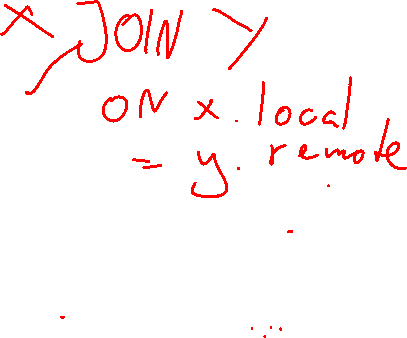 X JOIN Y
ON x.local
= y.remote